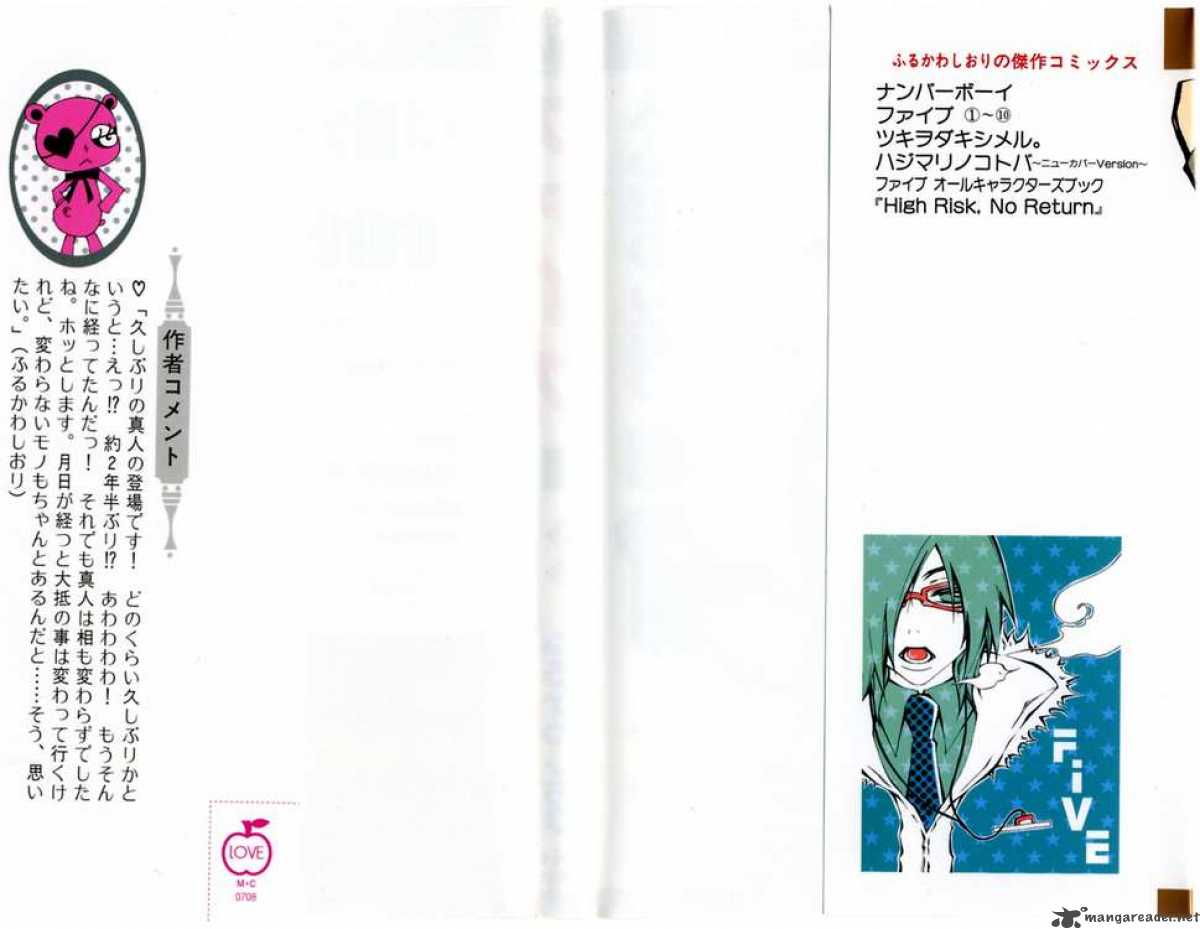 ふるかわしおりの傑作コミックス
ナンバーボーイ
ファイブ ①～⑩
ツキヲダキシメル。
ハジマリノコトバ～ニューカバーVersion～
ファイブ オールキャラクターズブック
『High Risk, No Return』
FiVE
作者コメント
♡「久しぶりの真人の登場です！ どのくらい久しぶりかと
いうと…えっ!? 約2年半ぶり!? あわわわわ！ もうそん
なに経ってたんだっ！ それでも真人は相も変わらずでした
ね。ホッとします。月日が経つと大抵の事は変わって行くけ
れど、変わらないモノもちゃんとあるんだと……そう、思い
たい。」（ふるかわしおり）
LOVE
M・C
0708
mangareader.net